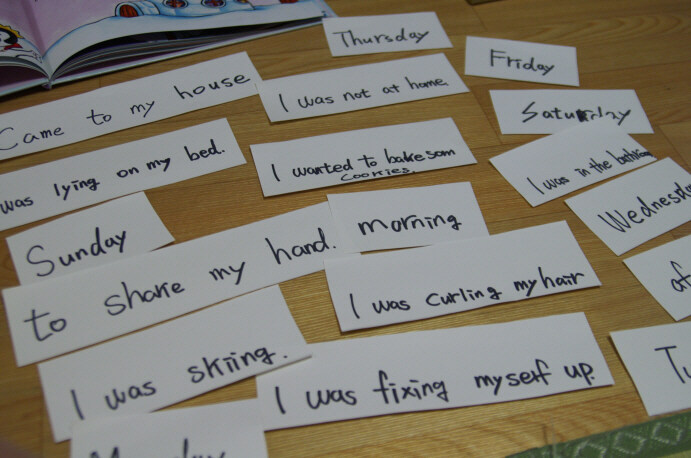 Thursday
Friday
Came to my house
I was not at home.
Saturday
was lying on my bed.
I wanted to bake som
cookies.
I was in the bathroom
Sunday
morning
Wednesday
to shake my hand.
I was curling my hair
I was skiing.
I was fixing myself up.